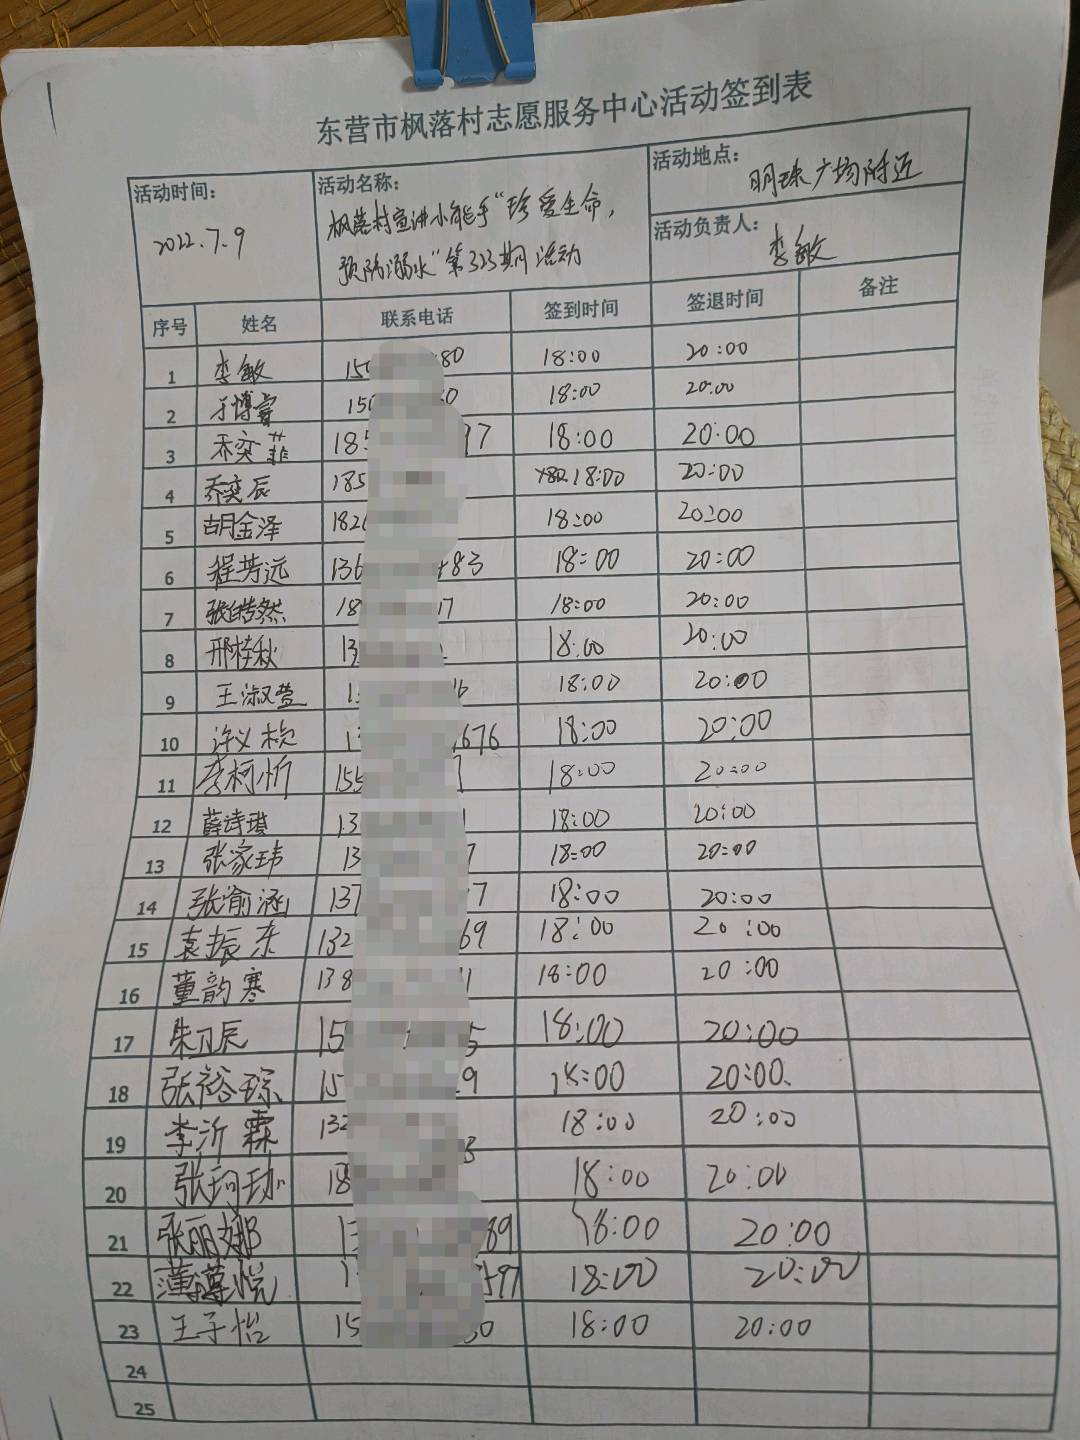 东营市枫落村志愿服务中心活动签到表
活动时间：
2022.7.9
活动名称：
枫落村宣讲小能手“珍爱生命，
预防溺水”第323期活动
活动地点：
明珠广场附近
活动负责人：
李敏
序号 姓名 联系电话 签到时间 签退时间 备注
1 李敏 150 80 18:00 20:00
2 于博睿 150 50 18:00 20:00
3 乔奕菲 185 97 18:00 20:00
4 乔奕辰 185 18:00 20:00
5 胡金泽 182 18:00 20:00
6 程芳远 136 483 18:00 20:00
7 张皓然 18 17 18:00 20:00
8 邢梓秋 13 18:00 20:00
9 王淑萱 1 6 18:00 20:00
10 许义桢 1 676 18:00 20:00
11 李柯忻 155 18:00 20:00
12 薛诗琪 13 1 18:00 20:00
13 张家玮 13 7 18:00 20:00
14 张渝涵 137 7 18:00 20:00
15 袁振东 132 69 18:00 20:00
16 董韵寒 138 1 18:00 20:00
17 朱 辰 15 5 18:00 20:00
18 张裕琮 15 29 18:00 20:00
19 李沂霖 132 3 18:00 20:00
20 张珂珈 18 18:00 20:00
21 张丽娜 13 89 18:00 20:00
22 薄 悦 1 597 18:00 20:00
23 王子怡 15 50 18:00 20:00
24
25